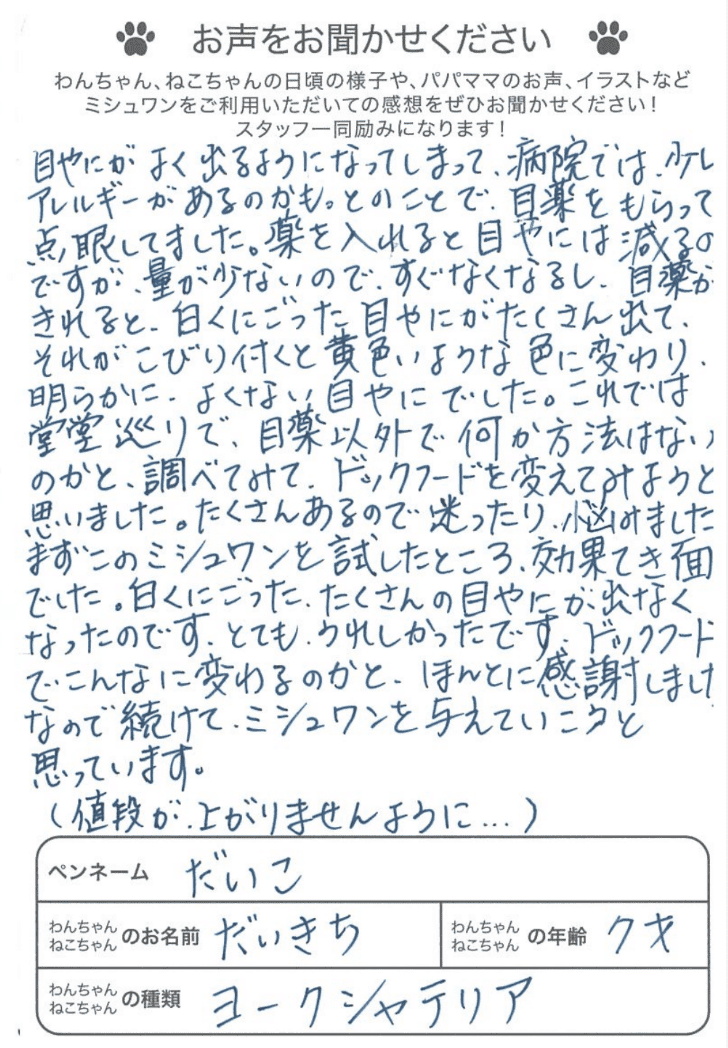 お声をお聞かせください
わんちゃん、ねこちゃんの日頃の様子や、パパママのお声、イラストなど
ミシュワンをご利用いただいての感想をぜひお聞かせください!
スタッフ一同励みになります!
目やにが よく出るようになってしまって、病院では、少し
アレルギーがあるのかもっとのことで、目薬をもらって
点眼してました。薬を入れると目やには減るの
ですが、量が少ないので、すぐなくなるし、目薬が
きれると、白くにごった目やにがたくさん出て、
それがこびり付くと黄色いような色に変わり、
明らかに、よくない目やにでした。これでは
堂堂巡りで、目薬以外で何か方法はない
のかと、調べてみて、ドックフードを変えてみようと
思いました。たくさんあるので迷ったり、悩みました
まずこのミシュワンを試したところ、効果てき面
でした。白くにごった、たくさんの目やにが、出なく
なったのです、とても、うれしかったです、ドックフード
でこんなに変わるのかと、ほんとに感謝しまけ
なので続けて、ミシュワンを与えていこうと
思っています。
(値段が、上がりませんように…)
ペンネーム だいこ
わんちゃん ねこちゃん のお名前 だいきち わんちゃん ねこちゃん の年齢 才
わんちゃん ねこちゃん の種類 ヨークシャテリア